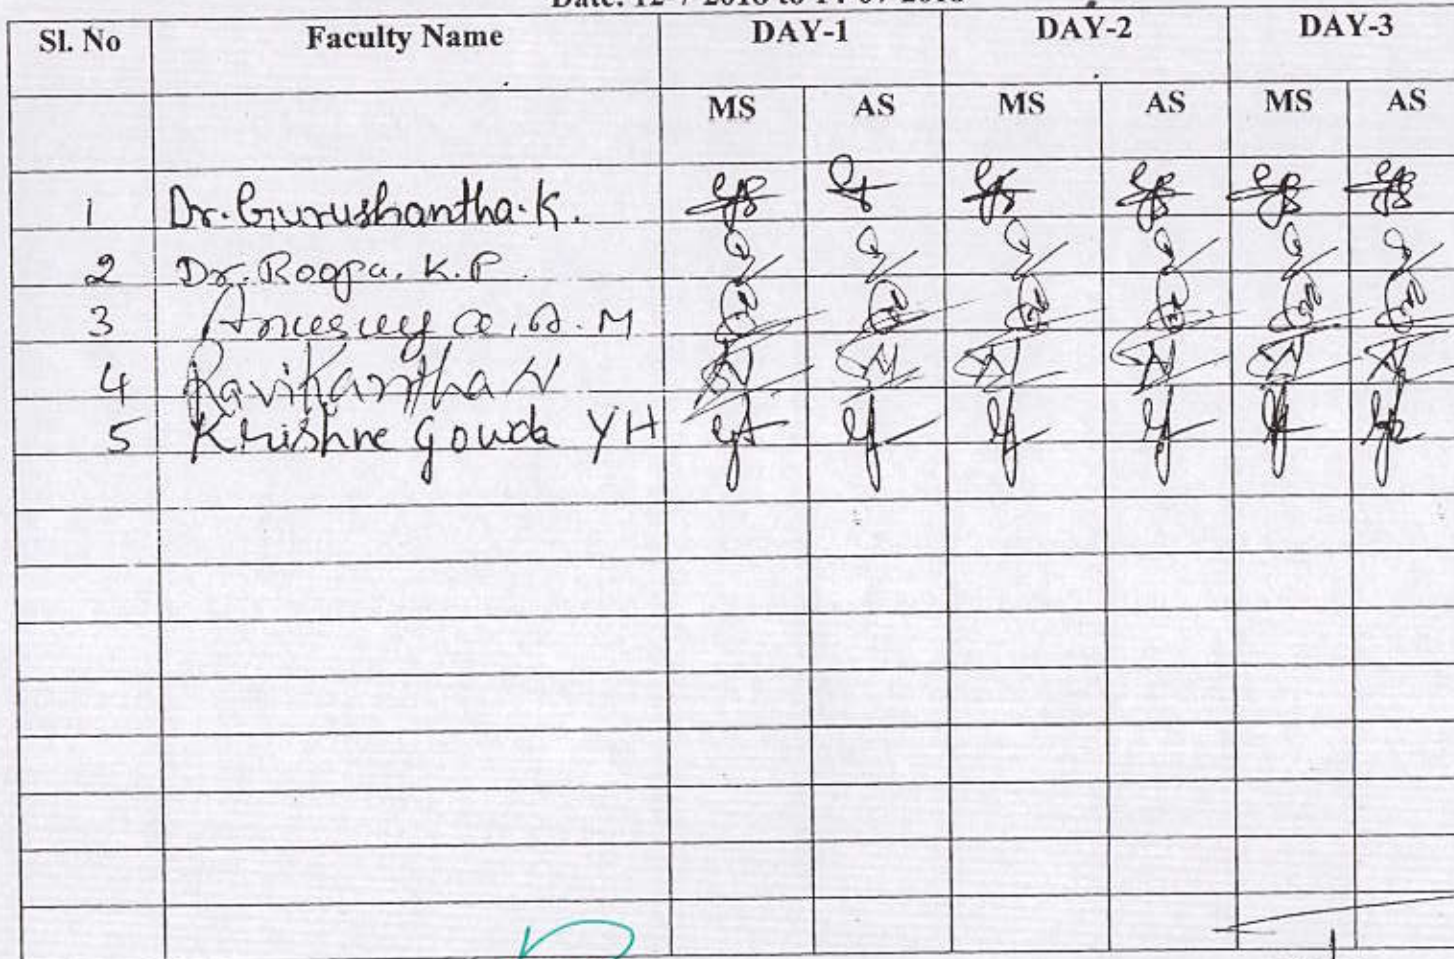 Date: 12-7-2018 to 14-07-2018
Sl. No Faculty Name DAY-1 DAY-2 DAY-3
MS AS MS AS MS AS
1 Dr. Gurushantha. K.
2 Dr. Roopa. K. P.
3 Anusuya. A. M
4 Ravikantha N
5 Krishne Gowda YH